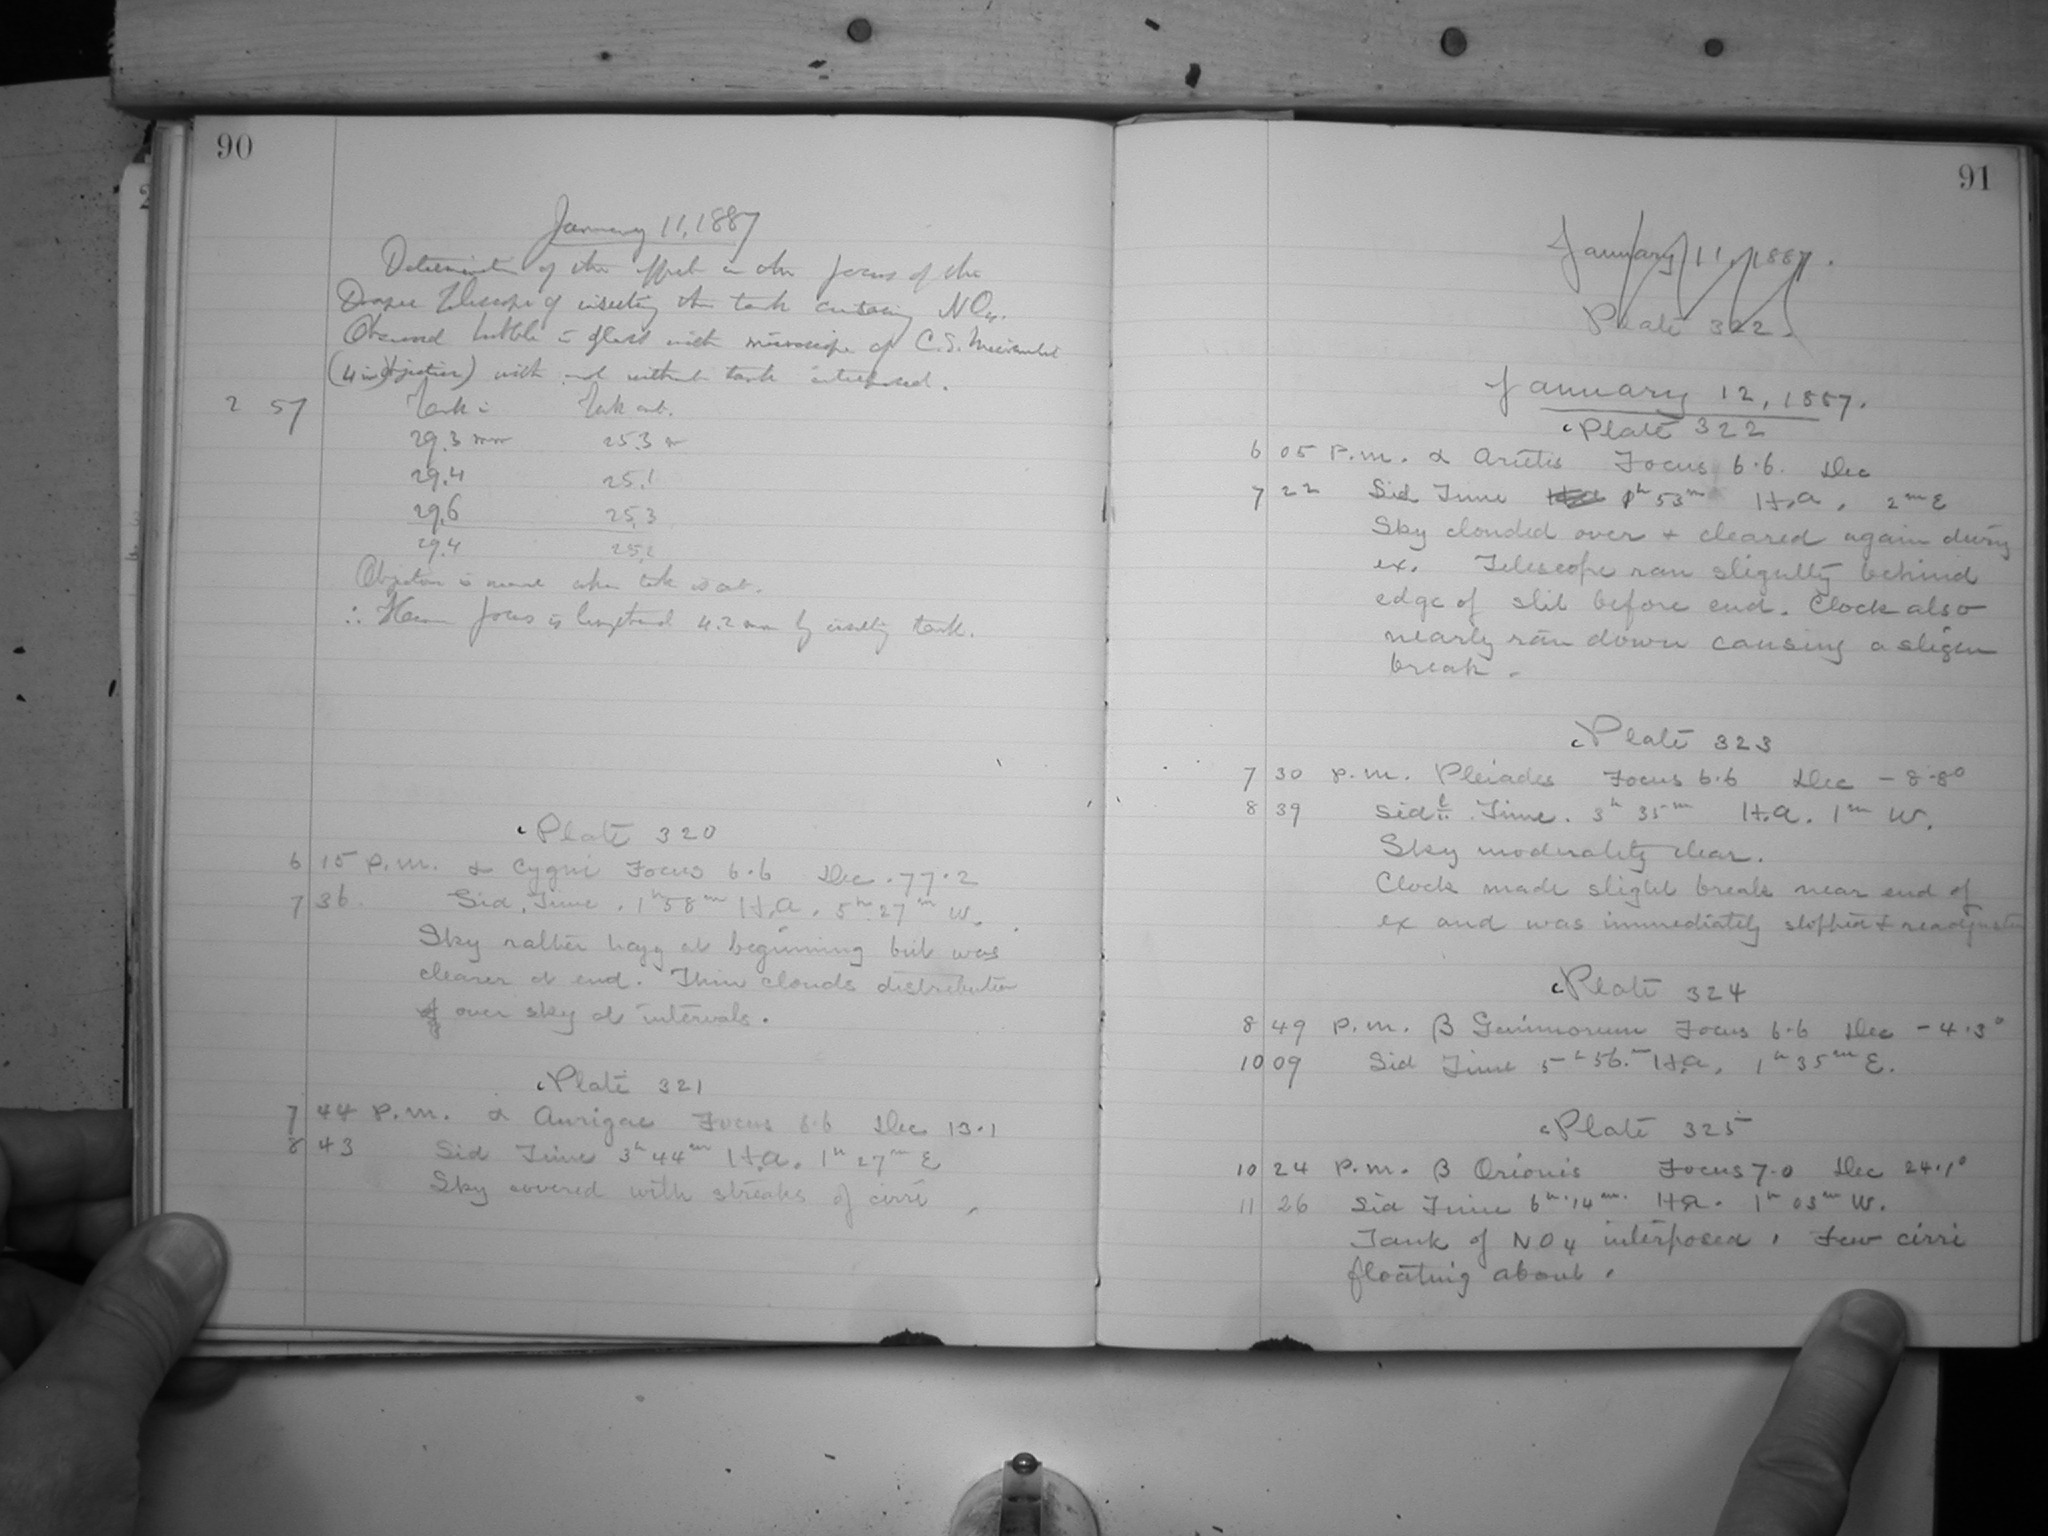 90
January 11, 1887
Determination of the effect on the focus of the
Draper Telescope of inserting the tank containing NO4.
Observed bubble in glass with microscope of C.S.
(4 in objective) with and without tank interposed.
2 57 Tank in Tank out.
29.3 mm 25.3 m
29.4 25.1
29.6 25.3
29.4 25.2
Objective is nearer when tank is out.
∴ Hence focus is lengthened 4.2 mm by inserting tank.
Plate 320
6 15 P.M. α Cygni Focus 6.6 Dec. 77.2
7 36. Sid. Time. 1h 58m H.A. 5h 27m W.
Sky rather hazy at beginning but was
clearer at end. Thin clouds distribution
over sky at intervals.
Plate 321
7 44 P.M. α Aurigae Focus 6.6 Dec 13.1
8 43 Sid Time 3h 44m H.A. 1h 27m E
Sky covered with streaks of cirri
91
January 11, 1887.
Plate 322
January 12, 1887.
Plate 322
6 05 P.M. α Arietis Focus 6.6. Dec
7 22 Sid Time 1h 53m H.A. 2m E
Sky clouded over + cleared again during
ex. Telescope ran slightly behind
edge of slit before end. Clock also
nearly ran down causing a
break.
Plate 323
7 30 P.M. Pleiades Focus 6.6 Dec - 8.8°
8 39 Sid. Time. 3h 35m H.A. 1m W.
Sky moderately clear.
Clock made slight break near end of
ex and was immediately stopped + readjusted
Plate 324
8 49 P.M. β Geminorum Focus 6.6 Dec - 4.3°
10 09 Sid Time 5h 56m H.A. 1h 35m E.
Plate 325
10 24 P.M. β Orionis Focus 7.0 Dec 24.1°
11 26 Sid Time 6h 14m. H.A. 1h 03m W.
Tank of NO4 interposed. Few cirri
floating about.